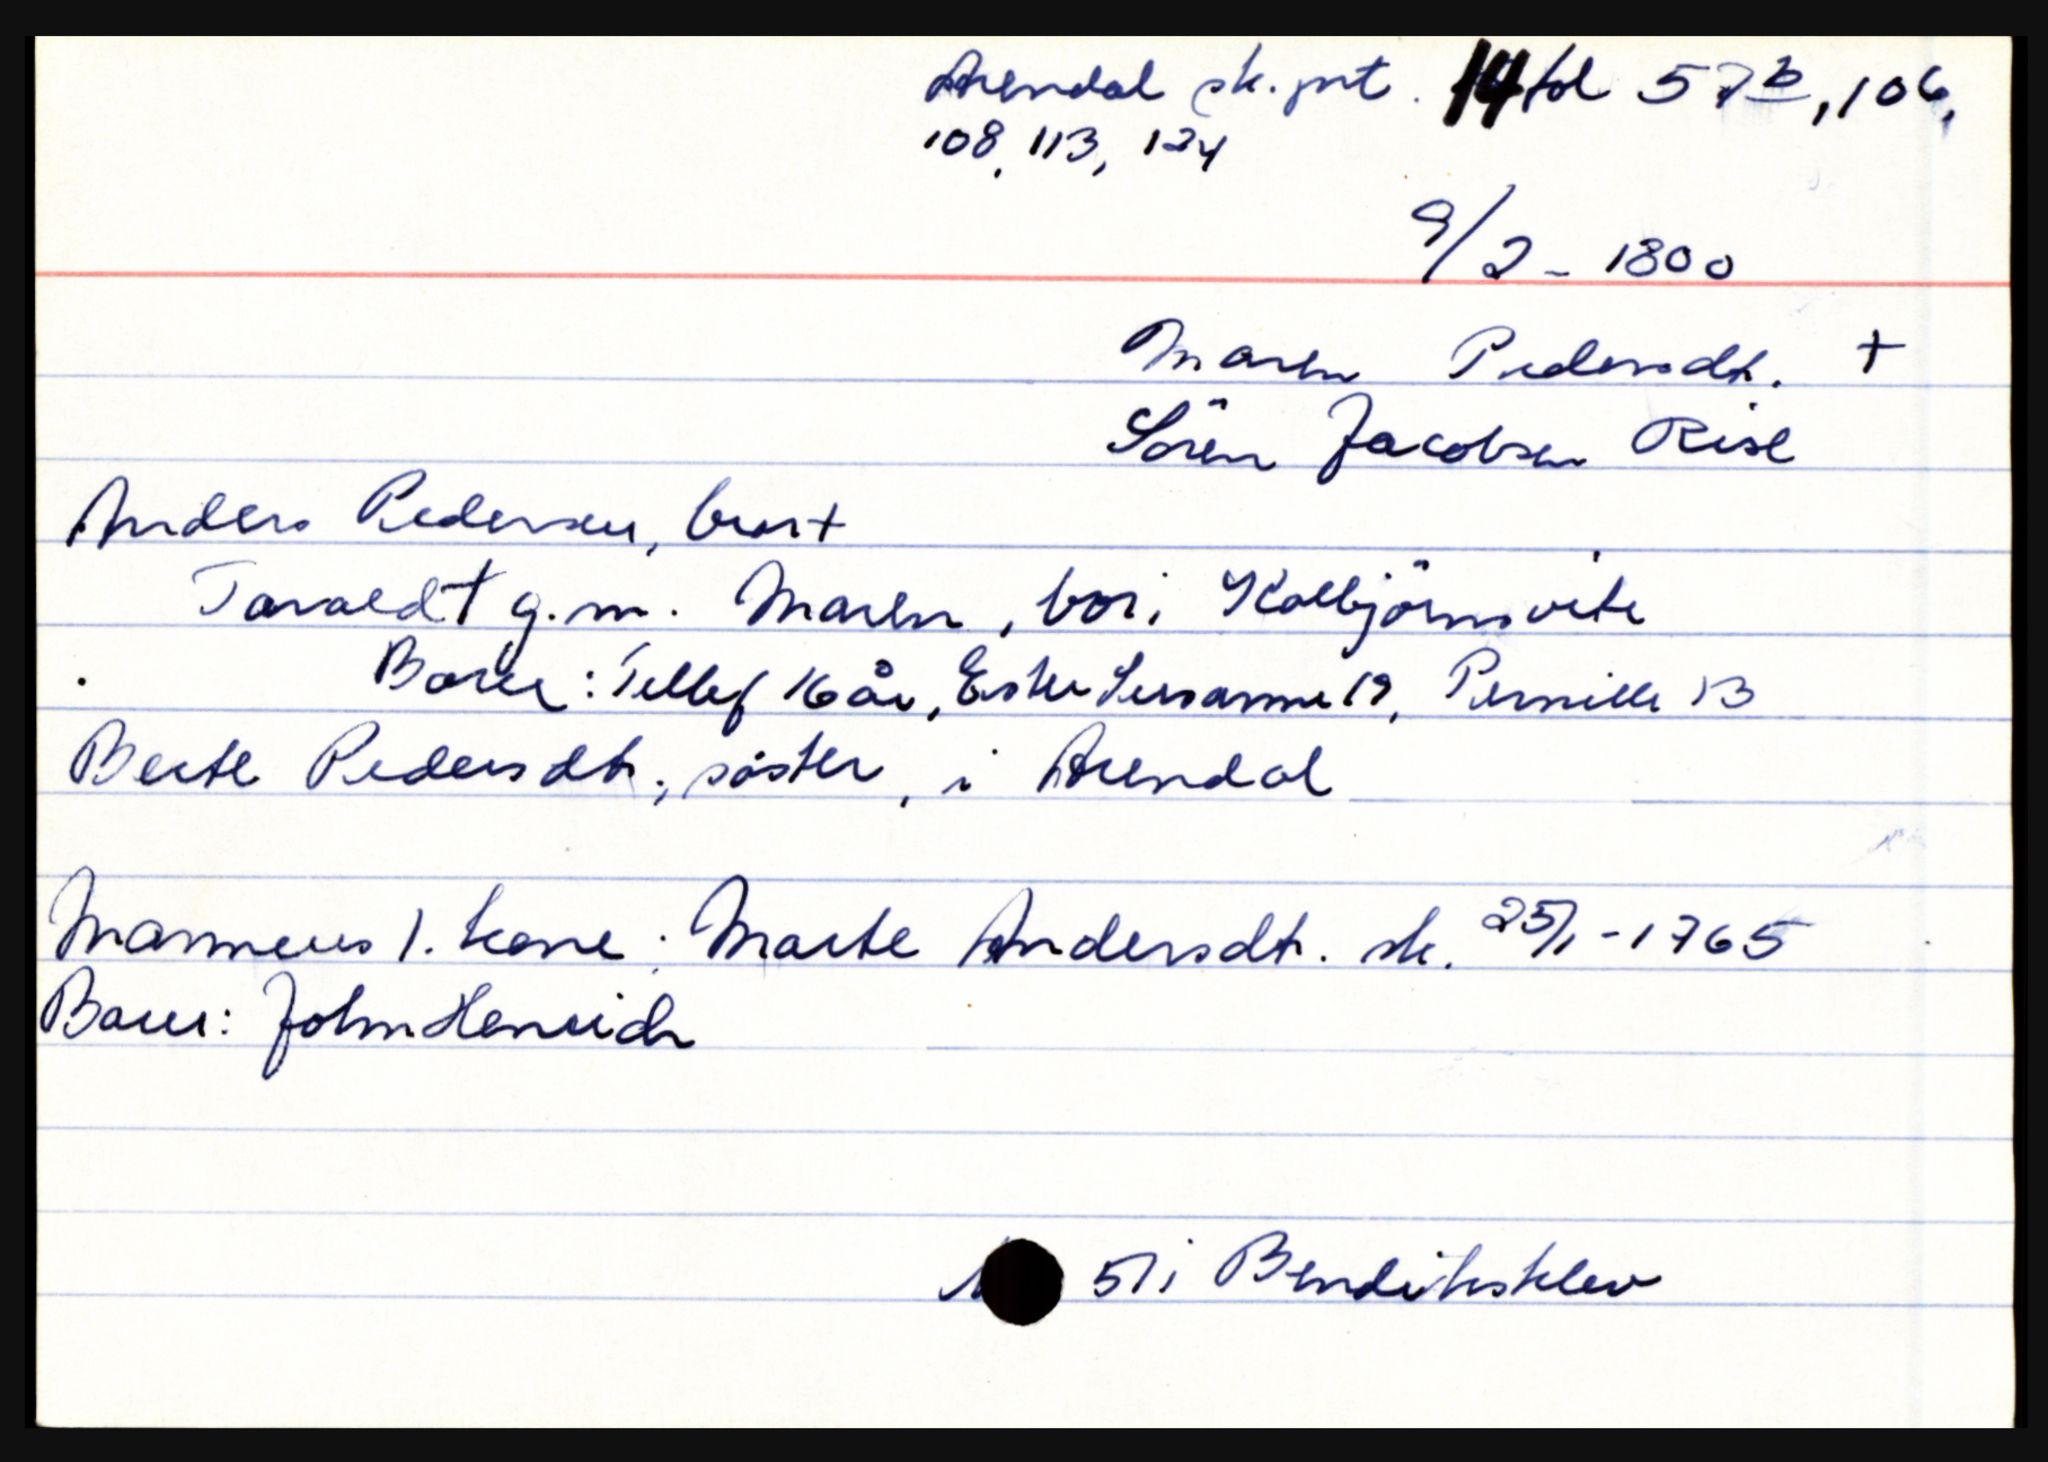 Arendal sk.prt. 14 fol 57b, 106,
108, 113, 124
9/2 - 1800
Maren Pedersdt. +
Sören Jacobsen Rise
Anders Pedersen, bror +
Taraldt g.m. Maren, bor i Kolbjörnsvik
Barn: Tellef 16 år, Ester Susanne 19, Pernille 13
Berte Pedersdt., söster, i Arendal
Mannens 1. kone: Marte Andersdt. sk. 25/1 - 1765
Barn: John Henrich
51 i Bendiksklev